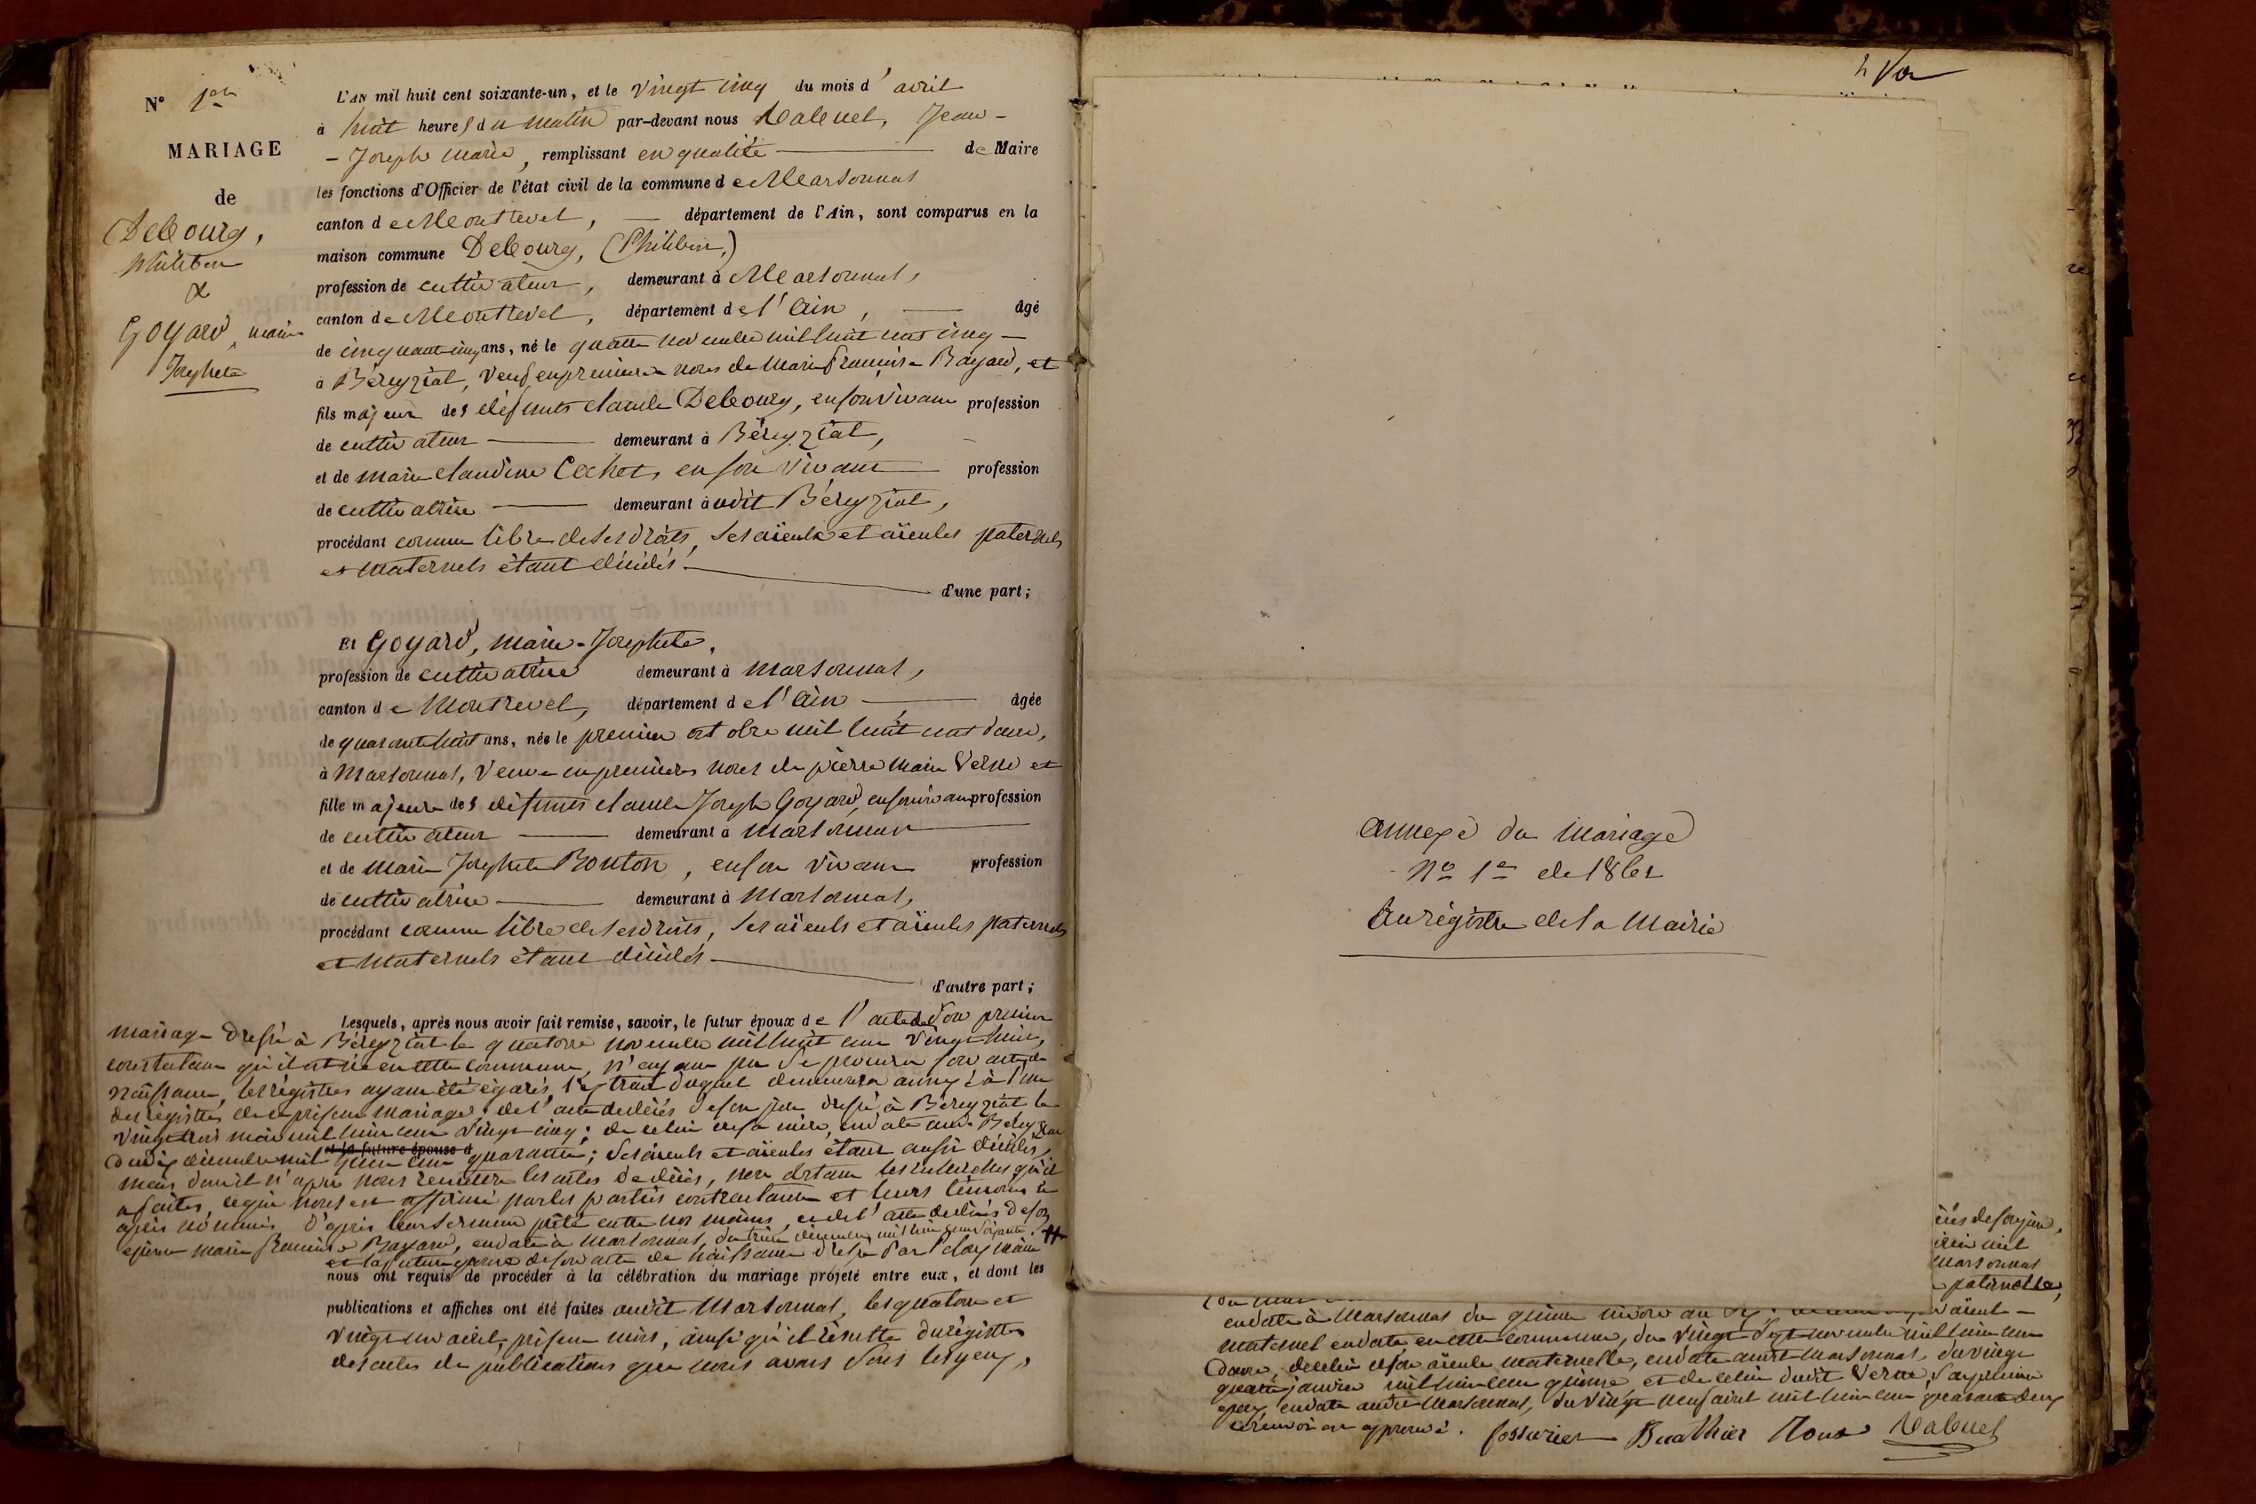 N° 1er
MARIAGE
de
Debourg,
Philibin
&
Goyard, marie
Josephete
L'AN mil huit cent soixante-un, et le vingt cinq du mois d'avril
à huit heures du matin par-devant nous Rabuel, Jean-
- Joseph Marie, remplissant en qualité de Maire
les fonctions d'Officier de l'état civil de la commune de Marsonnas
canton de Montrevel, département de l'Ain, sont comparus en la
maison commune Debourg, (Philibin,)
profession de cultivateur, demeurant à Marsonnas,
canton de Montrevel, département de l'Ain, âgé
de cinquante cinq ans, né le quatre novembre mil huit cent cinq
à Béreyziat, veuf en premières noces de Marie Françoise Bayard, et
fils majeur des défunts claude Debourg, en son vivant profession
de cultivateur demeurant à Béreyziat,
et de marie claudine Cochet, en son vivant profession
de cultivatrice demeurant à udit Béreyziat,
procédant comme libre de ses droits, ses aïeuls et aïeules paternels
et maternels étant décédés.
d'une part;
Et Goyard, marie-Josephete,
profession de cultivatrice demeurant à marsonnas,
canton de Montrevel, département de l'Ain âgée
de quarante huit ans, née le premier octobre mil huit cent douze,
à Marsonnas, veuve en premières noces de pierre marie Verne et
fille majeure des défunts claude Joseph Goyard, en son vivant profession
de cultivateur demeurant à marsonnas
et de marie Josephete Bonton, en son vivant profession
de cultivatrice demeurant à marsonnas,
procédant comme libre de ses droits, ses aïeuls et aïeules paternels
et maternels étant décédés
d'autre part;
Lesquels, après nous avoir fait remise, savoir, le futur époux de l'acte de son premier
mariage dressé à Béreyziat le quatorze novembre mil huit cent vingt huit,
constatant qu'il est né en cette commune, n'ayant pu se procurer son acte de
naissance, les régistres ayant été égarés, l'extrait duquel demeurera annexé à l'un
des régistres de ce présent mariage; de l'acte de décès de son père dressé à Béreyziat le
vingt trois mai mil huit cent vingt cinq; de celui de sa mère, en date audit Béreyziat
du dix décembre mil huit cent quarante; ses aïeuls et aïeules étant aussi décédés,
et la future épouse d
mais dont il n'a pu nous remettre les actes de décès, non obstant les recherches qu'il
a faites, ce qui nous est affirmé par les parties contractantes et leurs témoins ci
après nommés, d'après leur serment prêté entre nos mains, et de l'acte de décès de son
épouse marie françoise Bayard, en date à Marsonnas, du treize décembre mil huit cent soixante. #
et la future épouse de son acte de naissance dressé par
nous ont requis de procéder à la célébration du mariage projeté entre eux, et dont les
publications et affiches ont été faites audit Marsonnas, les quatorze et
vingt un avril, présent mois, ainsi qu'il résulte du régistre
des actes de publications que nous avons sous les yeux,
Annexe du Mariage
N° 1er de 1861
Au régistre de la Mairie
cès de son père,
mil
Marsonnas
paternelle,
en date à Marsonnas du quinze nivôse an aïeul
maternel en date en cette commune, du vingt sept novembre mil huit cent
douze, de celui de son aïeule maternelle, en date audit Marsonnas, du vingt
quatre janvier mil huit cent quinze et de celui dudit Verne, son premier
époux, en date audit Marsonnas, du vingt neuf avril mil huit cent quarante deux
ce renvoi est approuvé. Buathier Rabuel